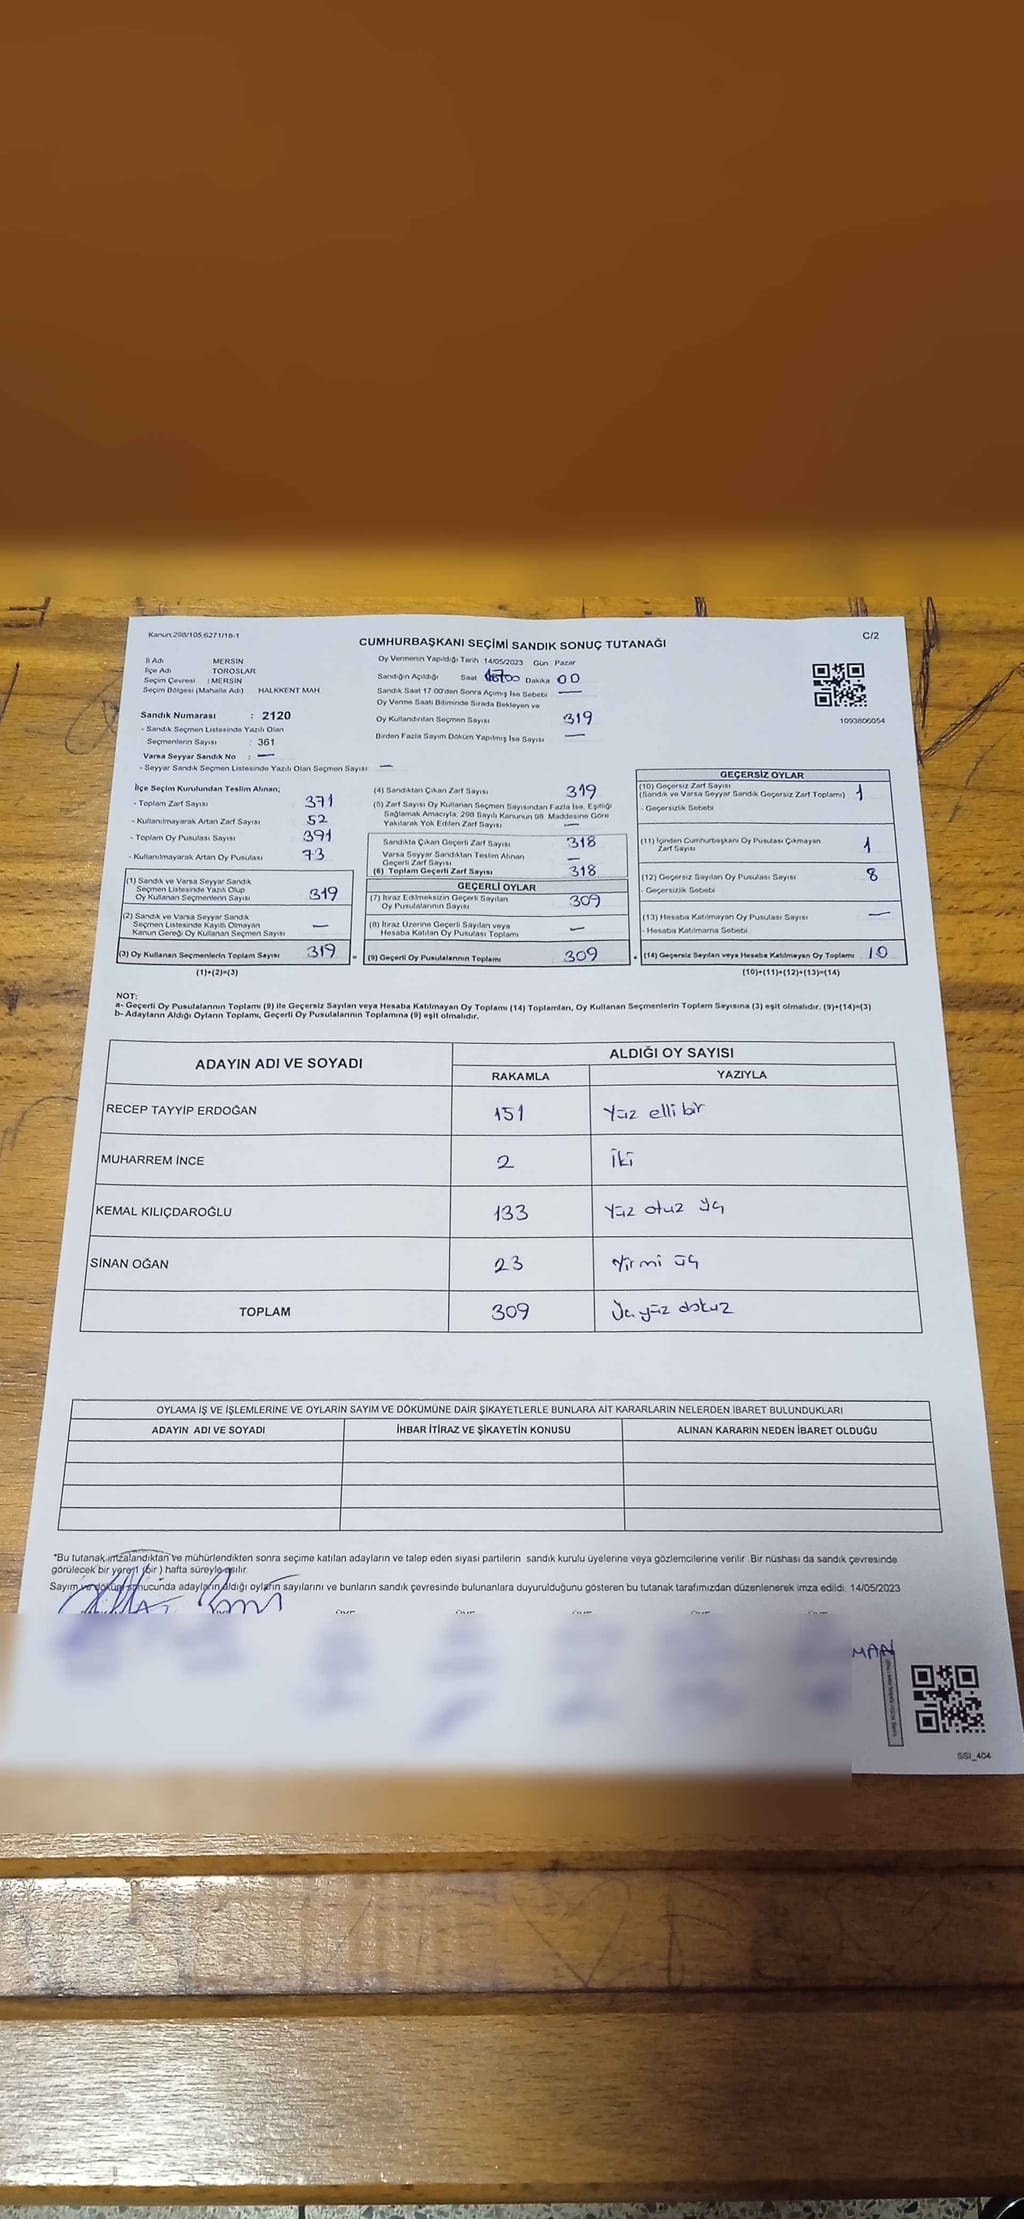 Kanun:298/105,6271/18-1
C/2
CUMHURBAŞKANI SEÇİMİ SANDIK SONUÇ TUTANAĞI
İl Adı MERSİN
İlçe Adı TOROSLAR
Seçim Çevresi : MERSİN
Seçim Bölgesi (Mahalle Adı) HALKKENT MAH
Sandık Numarası : 2120
- Sandık Seçmen Listesinde Yazılı Olan
Seçmenlerin Sayısı : 361
Varsa Seyyar Sandık No : —
- Seyyar Sandık Seçmen Listesinde Yazılı Olan Seçmen Sayısı —
Oy Vermenin Yapıldığı Tarih 14/05/2023 Gün Pazar
Sandığın Açıldığı Saat Dakika 00
Sandık Saat 17.00'den Sonra Açılmış İse Sebebi —
Oy Verme Saati Bitiminde Sırada Bekleyen ve
Oy Kullandırılan Seçmen Sayısı 319
Birden Fazla Sayım Döküm Yapılmış İse Sayısı —
1093806054
İlçe Seçim Kurulundan Teslim Alınan;
- Toplam Zarf Sayısı 371
- Kullanılmayarak Artan Zarf Sayısı 52
- Toplam Oy Pusulası Sayısı 391
- Kullanılmayarak Artan Oy Pusulası 73
(1) Sandık ve Varsa Seyyar Sandık
Seçmen Listesinde Yazılı Olup
Oy Kullanan Seçmenlerin Sayısı 319
(2) Sandık ve Varsa Seyyar Sandık
Seçmen Listesinde Kayıtlı Olmayan
Kanun Gereği Oy Kullanan Seçmen Sayısı —
(3) Oy Kullanan Seçmenlerin Toplam Sayısı 319
(1)+(2)=(3)
(4) Sandıktan Çıkan Zarf Sayısı 319
(5) Zarf Sayısı Oy Kullanan Seçmen Sayısından Fazla İse, Eşitliği
Sağlamak Amacıyla, 298 Sayılı Kanunun 98. Maddesine Göre
Yakılarak Yok Edilen Zarf Sayısı —
Sandıkta Çıkan Geçerli Zarf Sayısı 318
Varsa Seyyar Sandıktan Teslim Alınan
Geçerli Zarf Sayısı —
(6) Toplam Geçerli Zarf Sayısı 318
GEÇERLİ OYLAR
(7) İtiraz Edilmeksizin Geçerli Sayılan
Oy Pusulalarının Sayısı 309
(8) İtiraz Üzerine Geçerli Sayılan veya
Hesaba Katılan Oy Pusulası Toplamı —
= (9) Geçerli Oy Pusulalarının Toplamı 309
GEÇERSİZ OYLAR
(10) Geçersiz Zarf Sayısı
(Sandık ve Varsa Seyyar Sandık Geçersiz Zarf Toplamı) 1
- Geçersizlik Sebebi
(11) İçinden Cumhurbaşkanı Oy Pusulası Çıkmayan
Zarf Sayısı 1
(12) Geçersiz Sayılan Oy Pusulası Sayısı 8
- Geçersizlik Sebebi
(13) Hesaba Katılmayan Oy Pusulası Sayısı —
- Hesaba Katılmama Sebebi
+ (14) Geçersiz Sayılan veya Hesaba Katılmayan Oy Toplamı 10
(10)+(11)+(12)+(13)=(14)
NOT:
a- Geçerli Oy Pusulalarının Toplamı (9) ile Geçersiz Sayılan veya Hesaba Katılmayan Oy Toplamı (14) Toplamları, Oy Kullanan Seçmenlerin Toplam Sayısına (3) eşit olmalıdır. (9)+(14)=(3)
b- Adayların Aldığı Oyların Toplamı, Geçerli Oy Pusulalarının Toplamına (9) eşit olmalıdır.
ADAYIN ADI VE SOYADI
ALDIĞI OY SAYISI
RAKAMLA YAZIYLA
RECEP TAYYİP ERDOĞAN 151 Yüz elli bir
MUHARREM İNCE 2 İki
KEMAL KILIÇDAROĞLU 133 Yüz otuz üç
SİNAN OĞAN 23 Yirmi üç
TOPLAM 309 Üç yüz dokuz
OYLAMA İŞ VE İŞLEMLERİNE VE OYLARIN SAYIM VE DÖKÜMÜNE DAİR ŞİKAYETLERLE BUNLARA AİT KARARLARIN NELERDEN İBARET BULUNDUKLARI
ADAYIN ADI VE SOYADI İHBAR İTİRAZ VE ŞİKAYETİN KONUSU ALINAN KARARIN NEDEN İBARET OLDUĞU
*Bu tutanak imzalandıktan ve mühürlendikten sonra seçime katılan adayların ve talep eden siyasi partilerin sandık kurulu üyelerine veya gözlemcilerine verilir. Bir nüshası da sandık çevresinde
görülecek bir yere 1 (bir) hafta süreyle asılır.
Sayım ve döküm sonucunda adayların aldığı oyların sayılarını ve bunların sandık çevresinde bulunanlara duyurulduğunu gösteren bu tutanak tarafımızdan düzenlenerek imza edildi. 14/05/2023
MAN
SSI_404